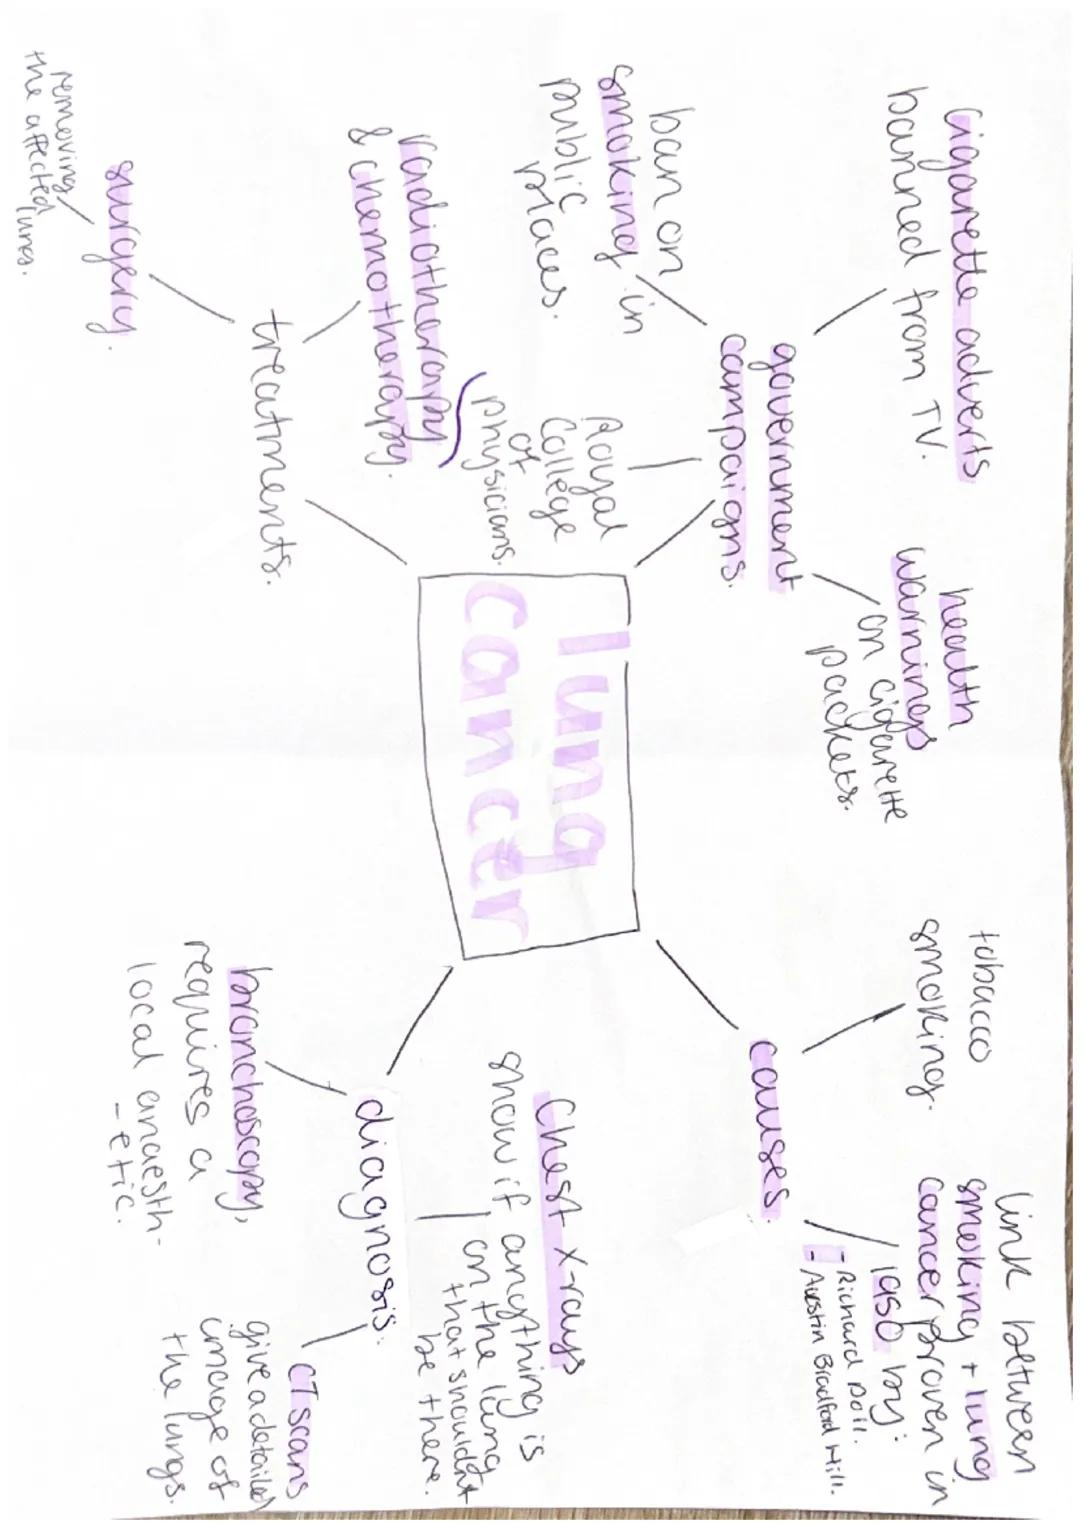 Lung
cancer
government
campaigns.
Cigarette adverts
banned from TV.
health
warnings
on cigarette
packets.
ban on
smoking in
public
places.
Royal
College
of
physicians.
causes.
tobacco
smoking.
link between
smoking + lung
cancer proven in
1950 by:
- Richard Doll.
- Austin Bradford Hill.
treatments.
radiotherapy
& chemotherapy.
surgery.
removing
the affected lungs.
diagnosis.
Chest X-rays
show if anything is
on the lung
that shouldnt
be there.
bronchoscopy,
requires a
local anaesth-
-etic.
CT scans
give a detailed
image of
the lungs.